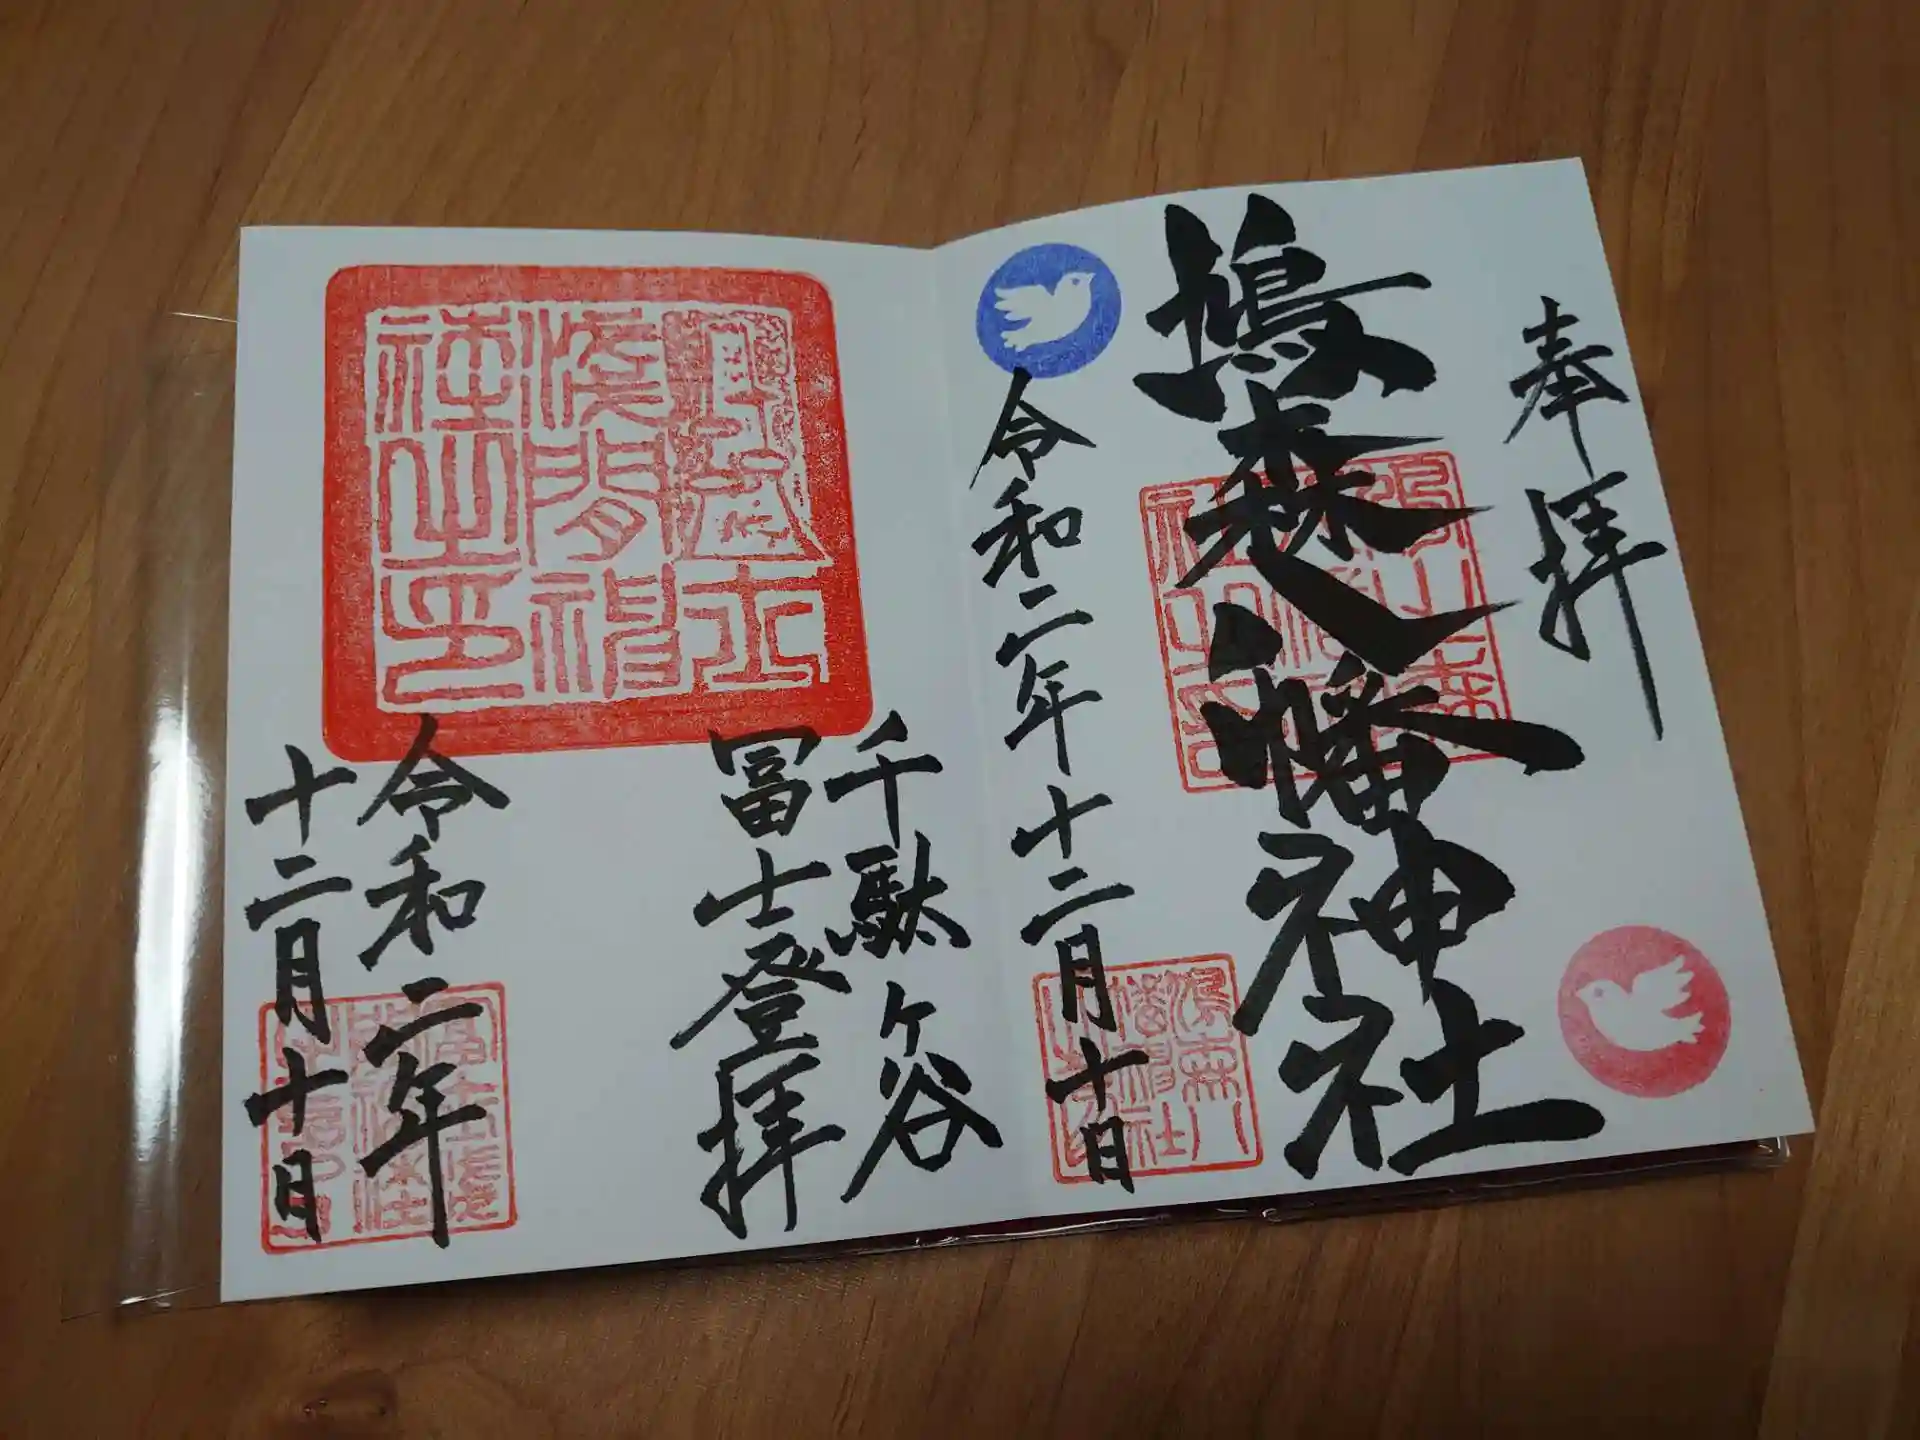 奉拝
鳩森八幡神社
令和二年十二月十日
千駄ヶ谷
冨士登拝
令和二年
十二月十日
士
浅間神
社之印